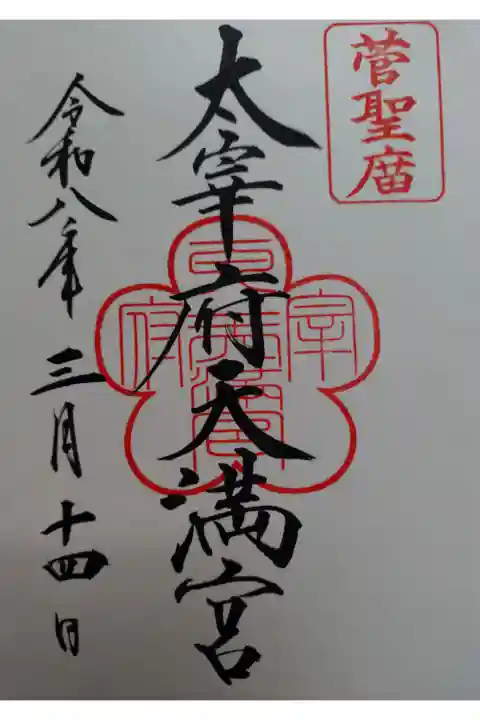 菅聖庿
太宰府天満宮
令和八年三月十四日